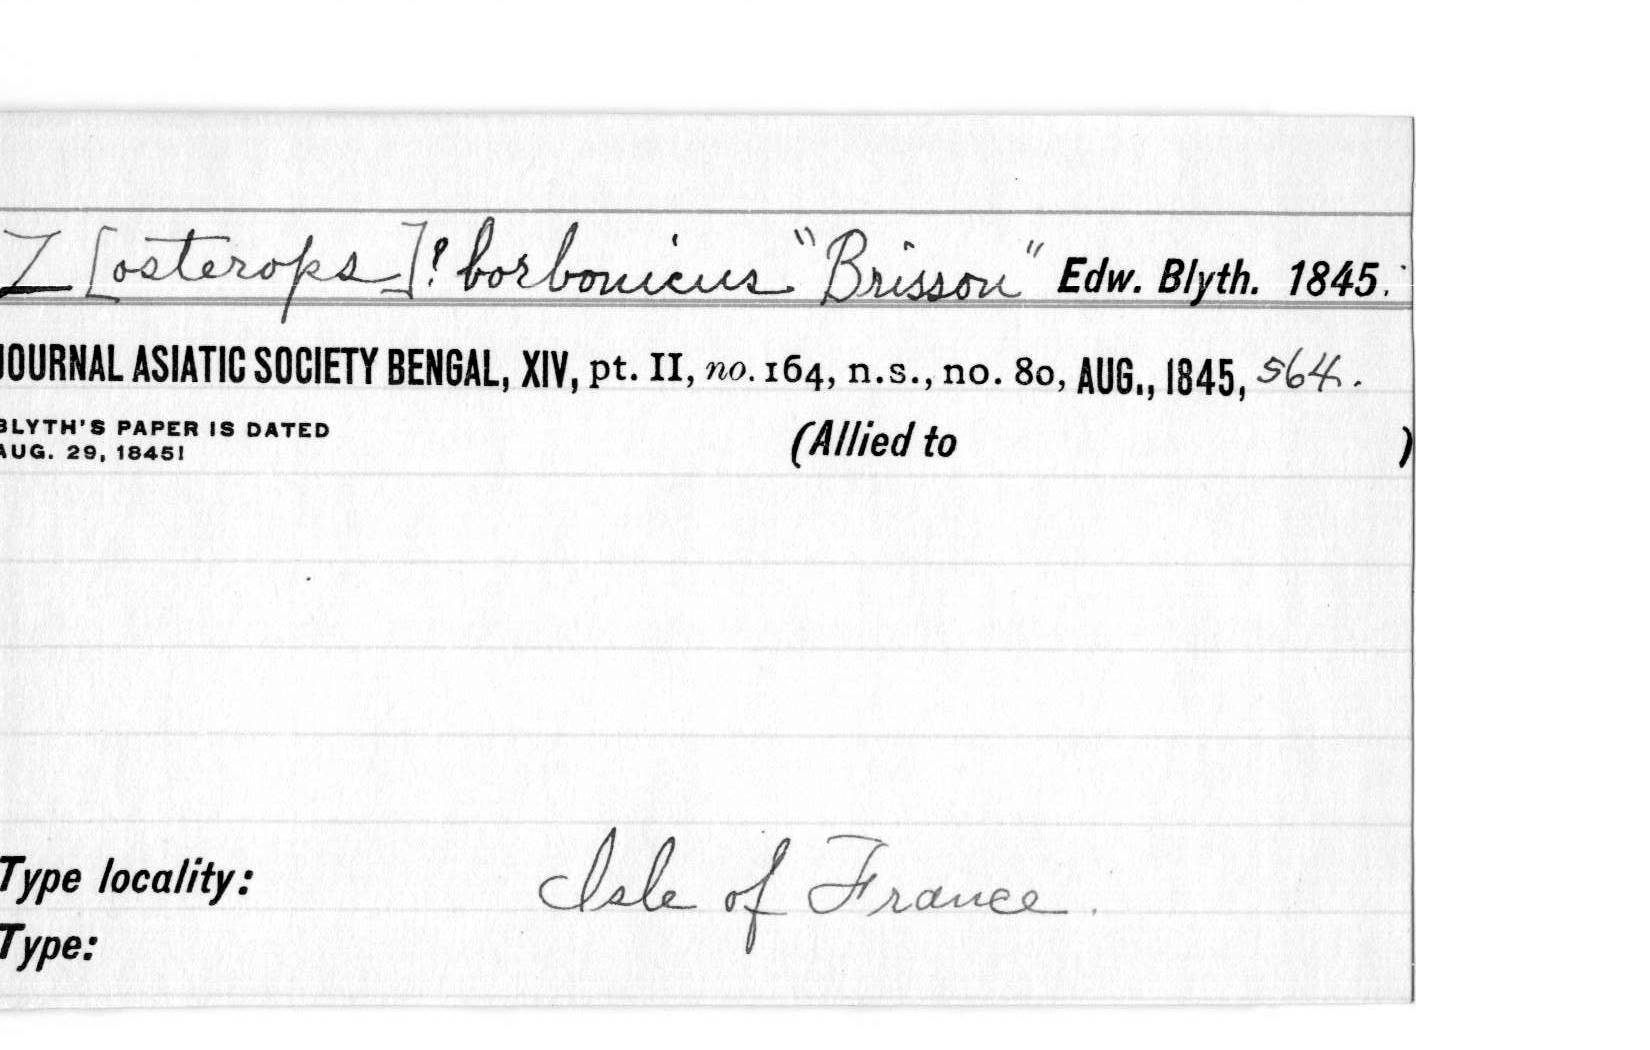 Z[osterops]? borbonicus "Brisson" Edw. Blyth. 1845.
JOURNAL ASIATIC SOCIETY BENGAL, XIV, pt. II, no. 164, n.s., no. 80, AUG., 1845, 564.
BLYTH'S PAPER IS DATED
AUG. 29, 1845!
(Allied to )
Type locality: Isle of France.
Type: